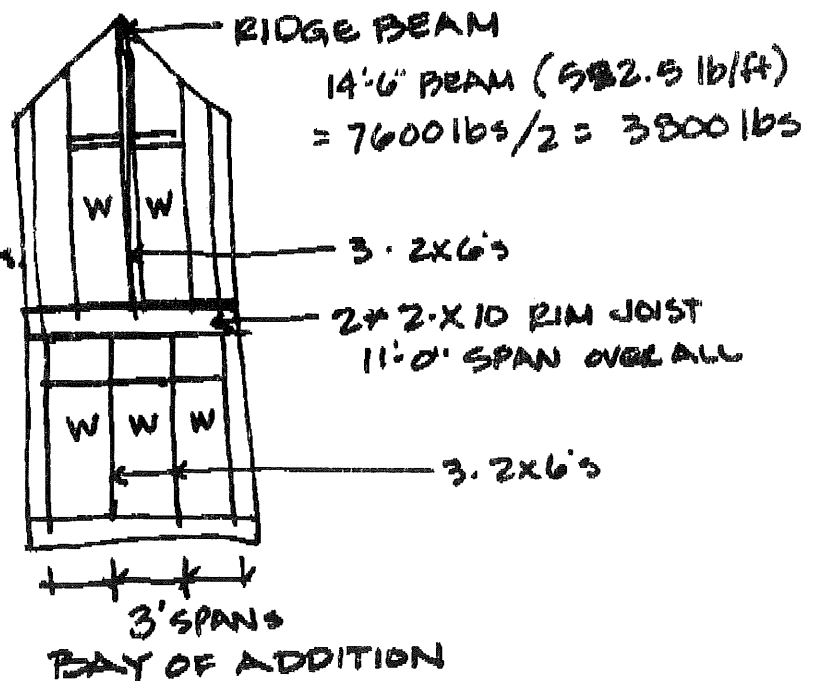 RIDGE BEAM
14'-6" BEAM (522.5 lb/ft)
= 7600 lbs/2 = 3800 lbs
W W
3 - 2x6's
2x 2-X 10 RIM JOIST
11'-0" SPAN OVER ALL
W W W
3 - 2x6's
3' SPANS
BAY OF ADDITION